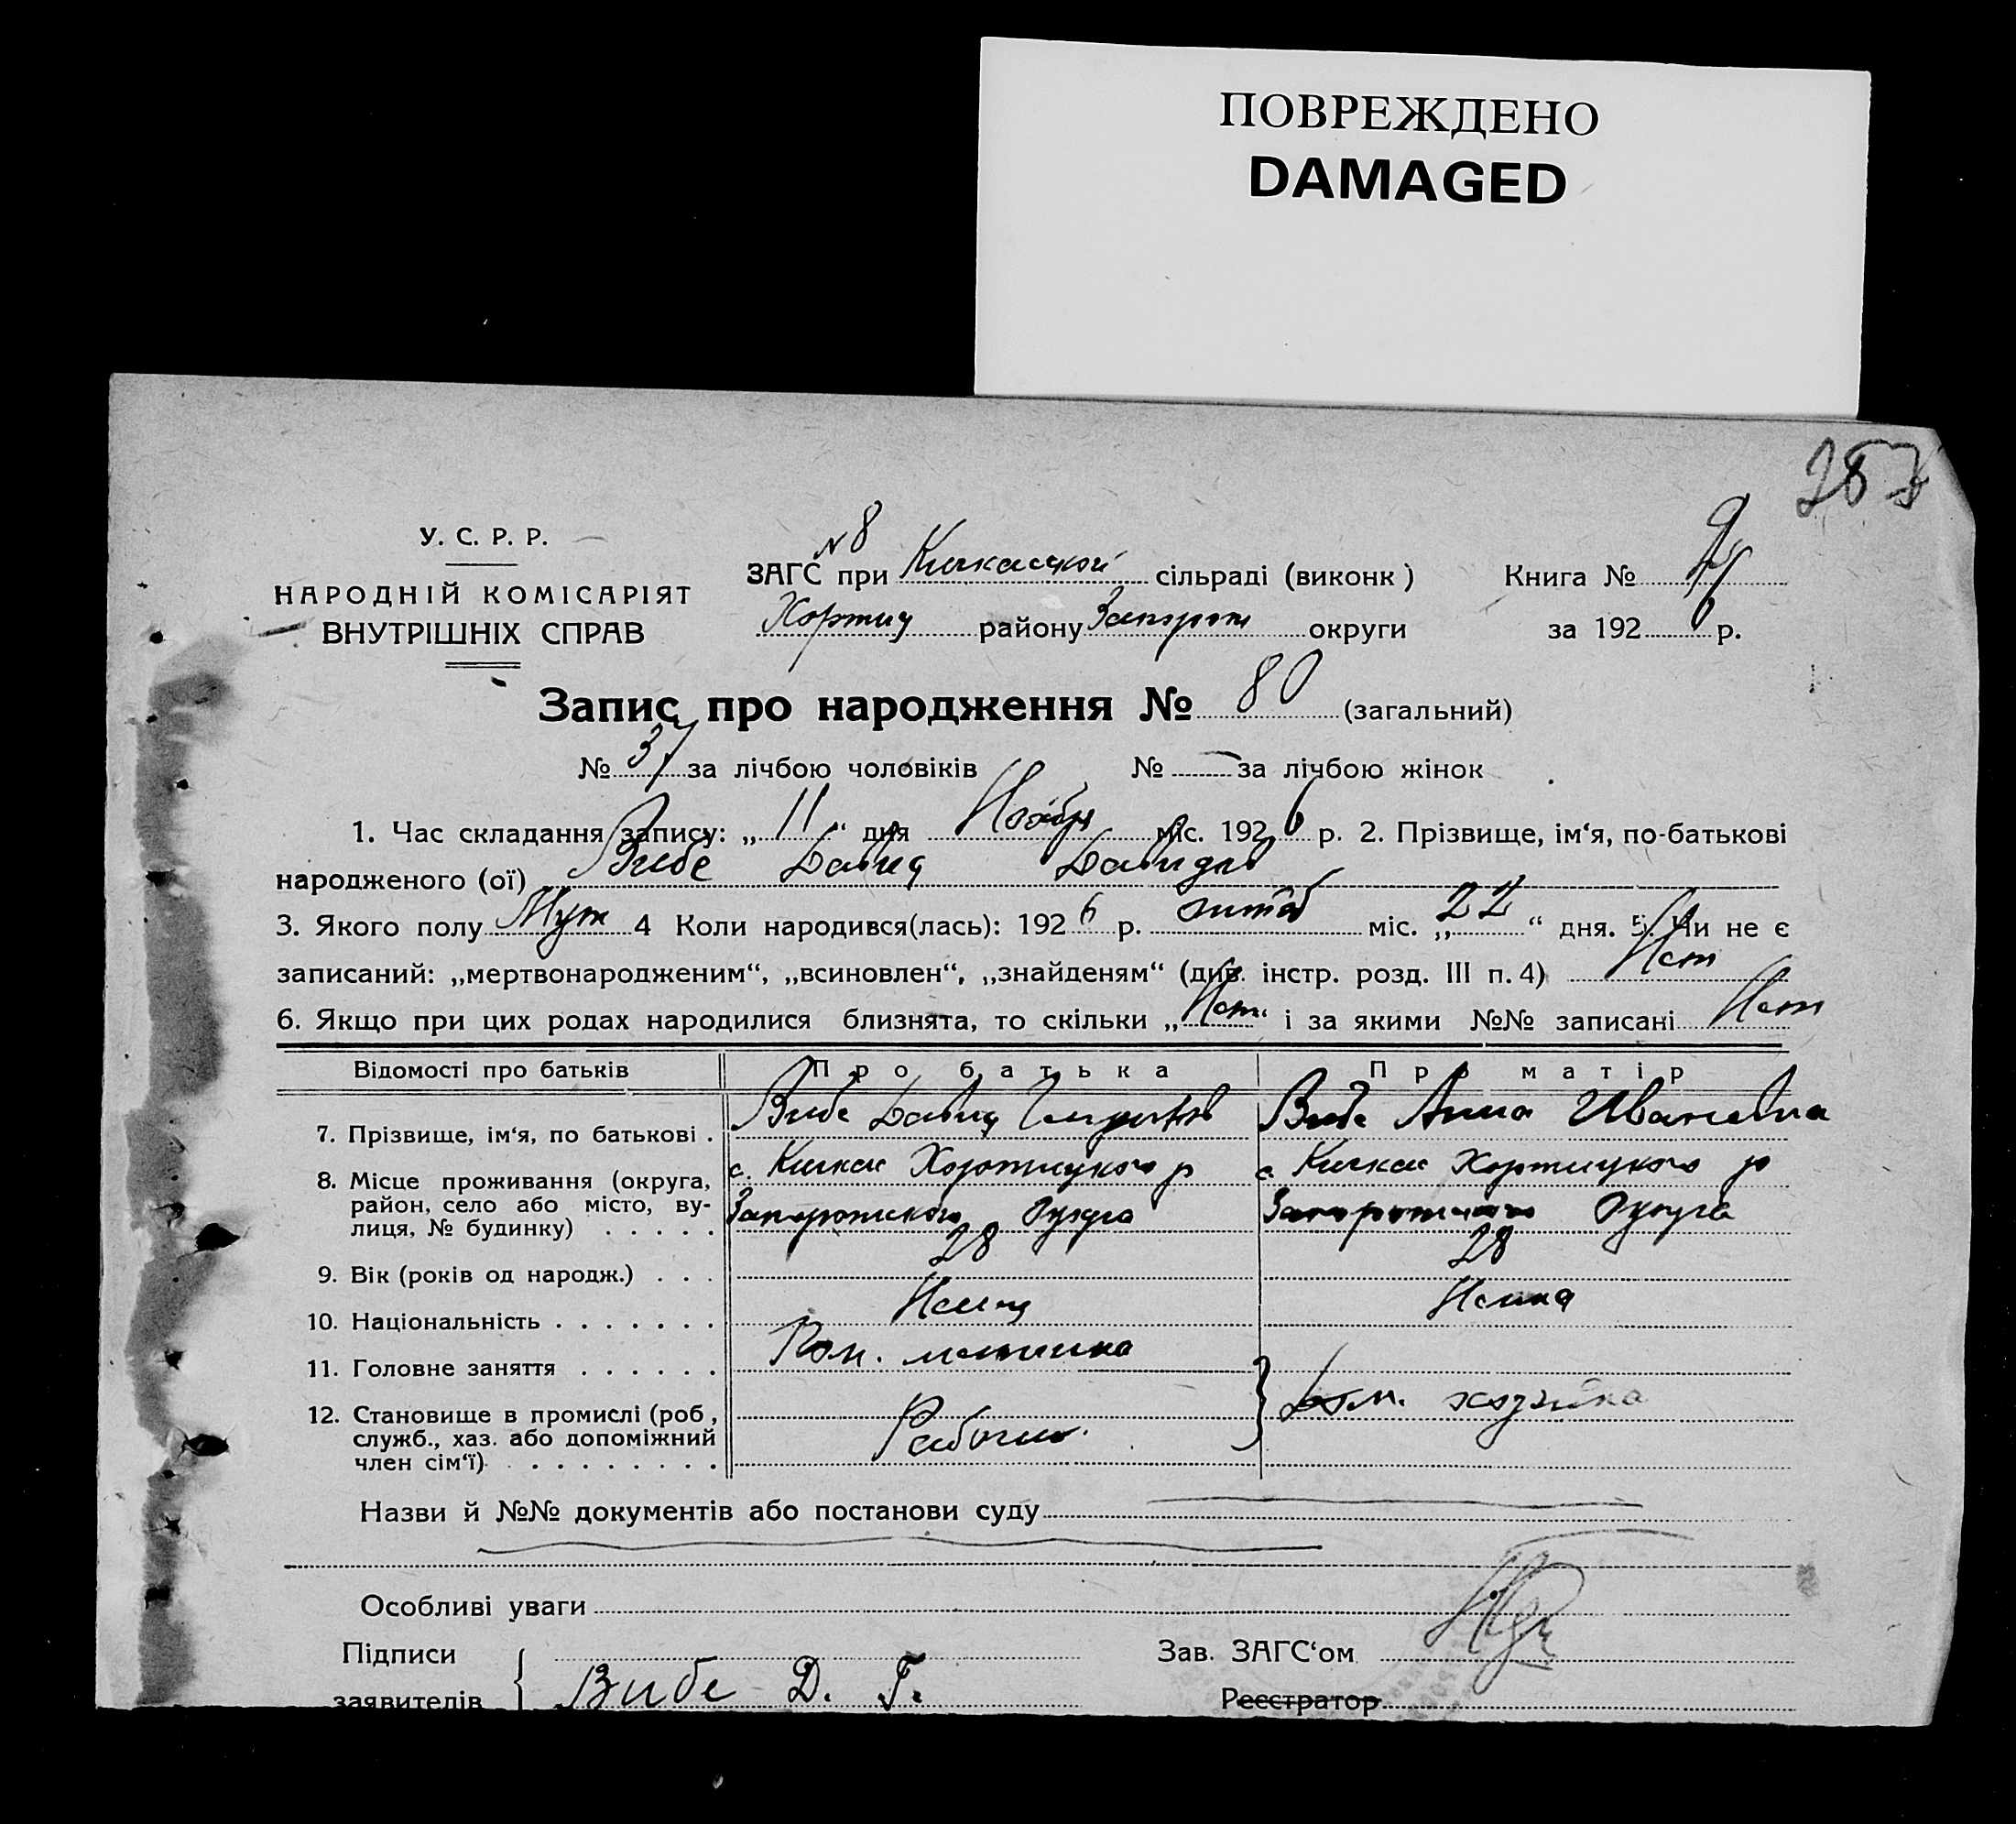 ПОВРЕЖДЕНО
DAMAGED
287
У. С. Р. Р.
НАРОДНІЙ КОМІСАРІЯТ
ВНУТРІШНІХ СПРАВ
N 8
ЗАГС при Кичкаской сільраді (виконк)
Хортиц району Запорож округи
Книга №
за 1926 р.
Запис про народження № 80 (загальний)
№ 37 за лічбою чоловіків № — за лічбою жінок
1. Час складання запису: „11“ дня Ноября міс. 1926 р. 2. Прізвище, ім‘я, по-батькові
народженого (ої) Вибе Давид Давидов
3. Якого полу Муж 4 Коли народився(лась): 1926 р. міс. „22“ дня. 5. Чи не є
записаний: „мертвонародженим“, „всиновлен“, „знайденям“ (див. інстр. розд. III п. 4) Нет
6. Якщо при цих родах народилися близнята, то скільки „Нет“ і за якими №№ записані Нет
Відомості про батьків Про батька Про матір
7. Прізвище, ім‘я, по батькові . Вибе Давид Вибе Анна Ивановна
8. Місце проживання (округа, район, село або місто, вулиця, № будинку) . . . . . с. Кичкас Хортицкого р Запорожского Округа с. Кичкас Хортицкого р Запорожского Округа
9. Вік (років од народж.) . . . 28 28
10. Національність . . . . . . . Немец Немка
11. Головне заняття . . . . . . Пом. машиниста
12. Становище в промислі (роб, служб., хаз. або допоміжний член сім‘ї) . . . . . . . . Рабочий. } Дом. хозяйка
Назви й №№ документів або постанови суду
Особливі уваги
Підписи
заявителів { Вибе Д. Г.
Зав. ЗАГС‘ом
Реєстратор